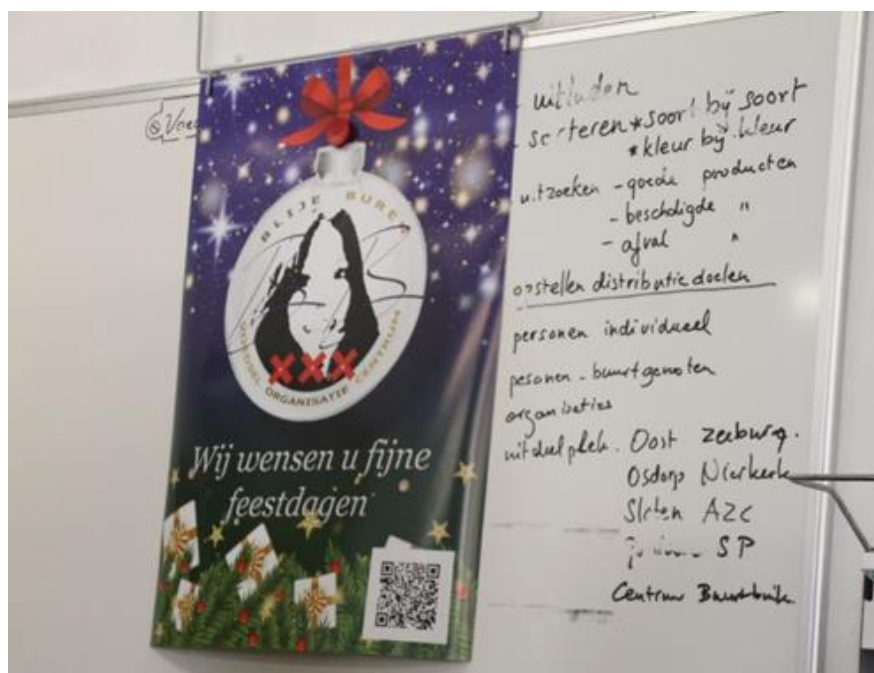 BLIJE BUREN
VOEDSEL ORGANISATIE CENTRUM
XXX
Wij wensen u fijne
feestdagen
uitladen
sorteren *soort bij soort
*kleur bij kleur
uitzoeken - goede producten
- beschadigde "
- afval "
opstellen distributie doelen
personen individueel
pesonen - buurtgenoten
organisaties
uitdeelplek. Oost Zeeburg.
Osdorp
Sloten AZC
SP
Centrum